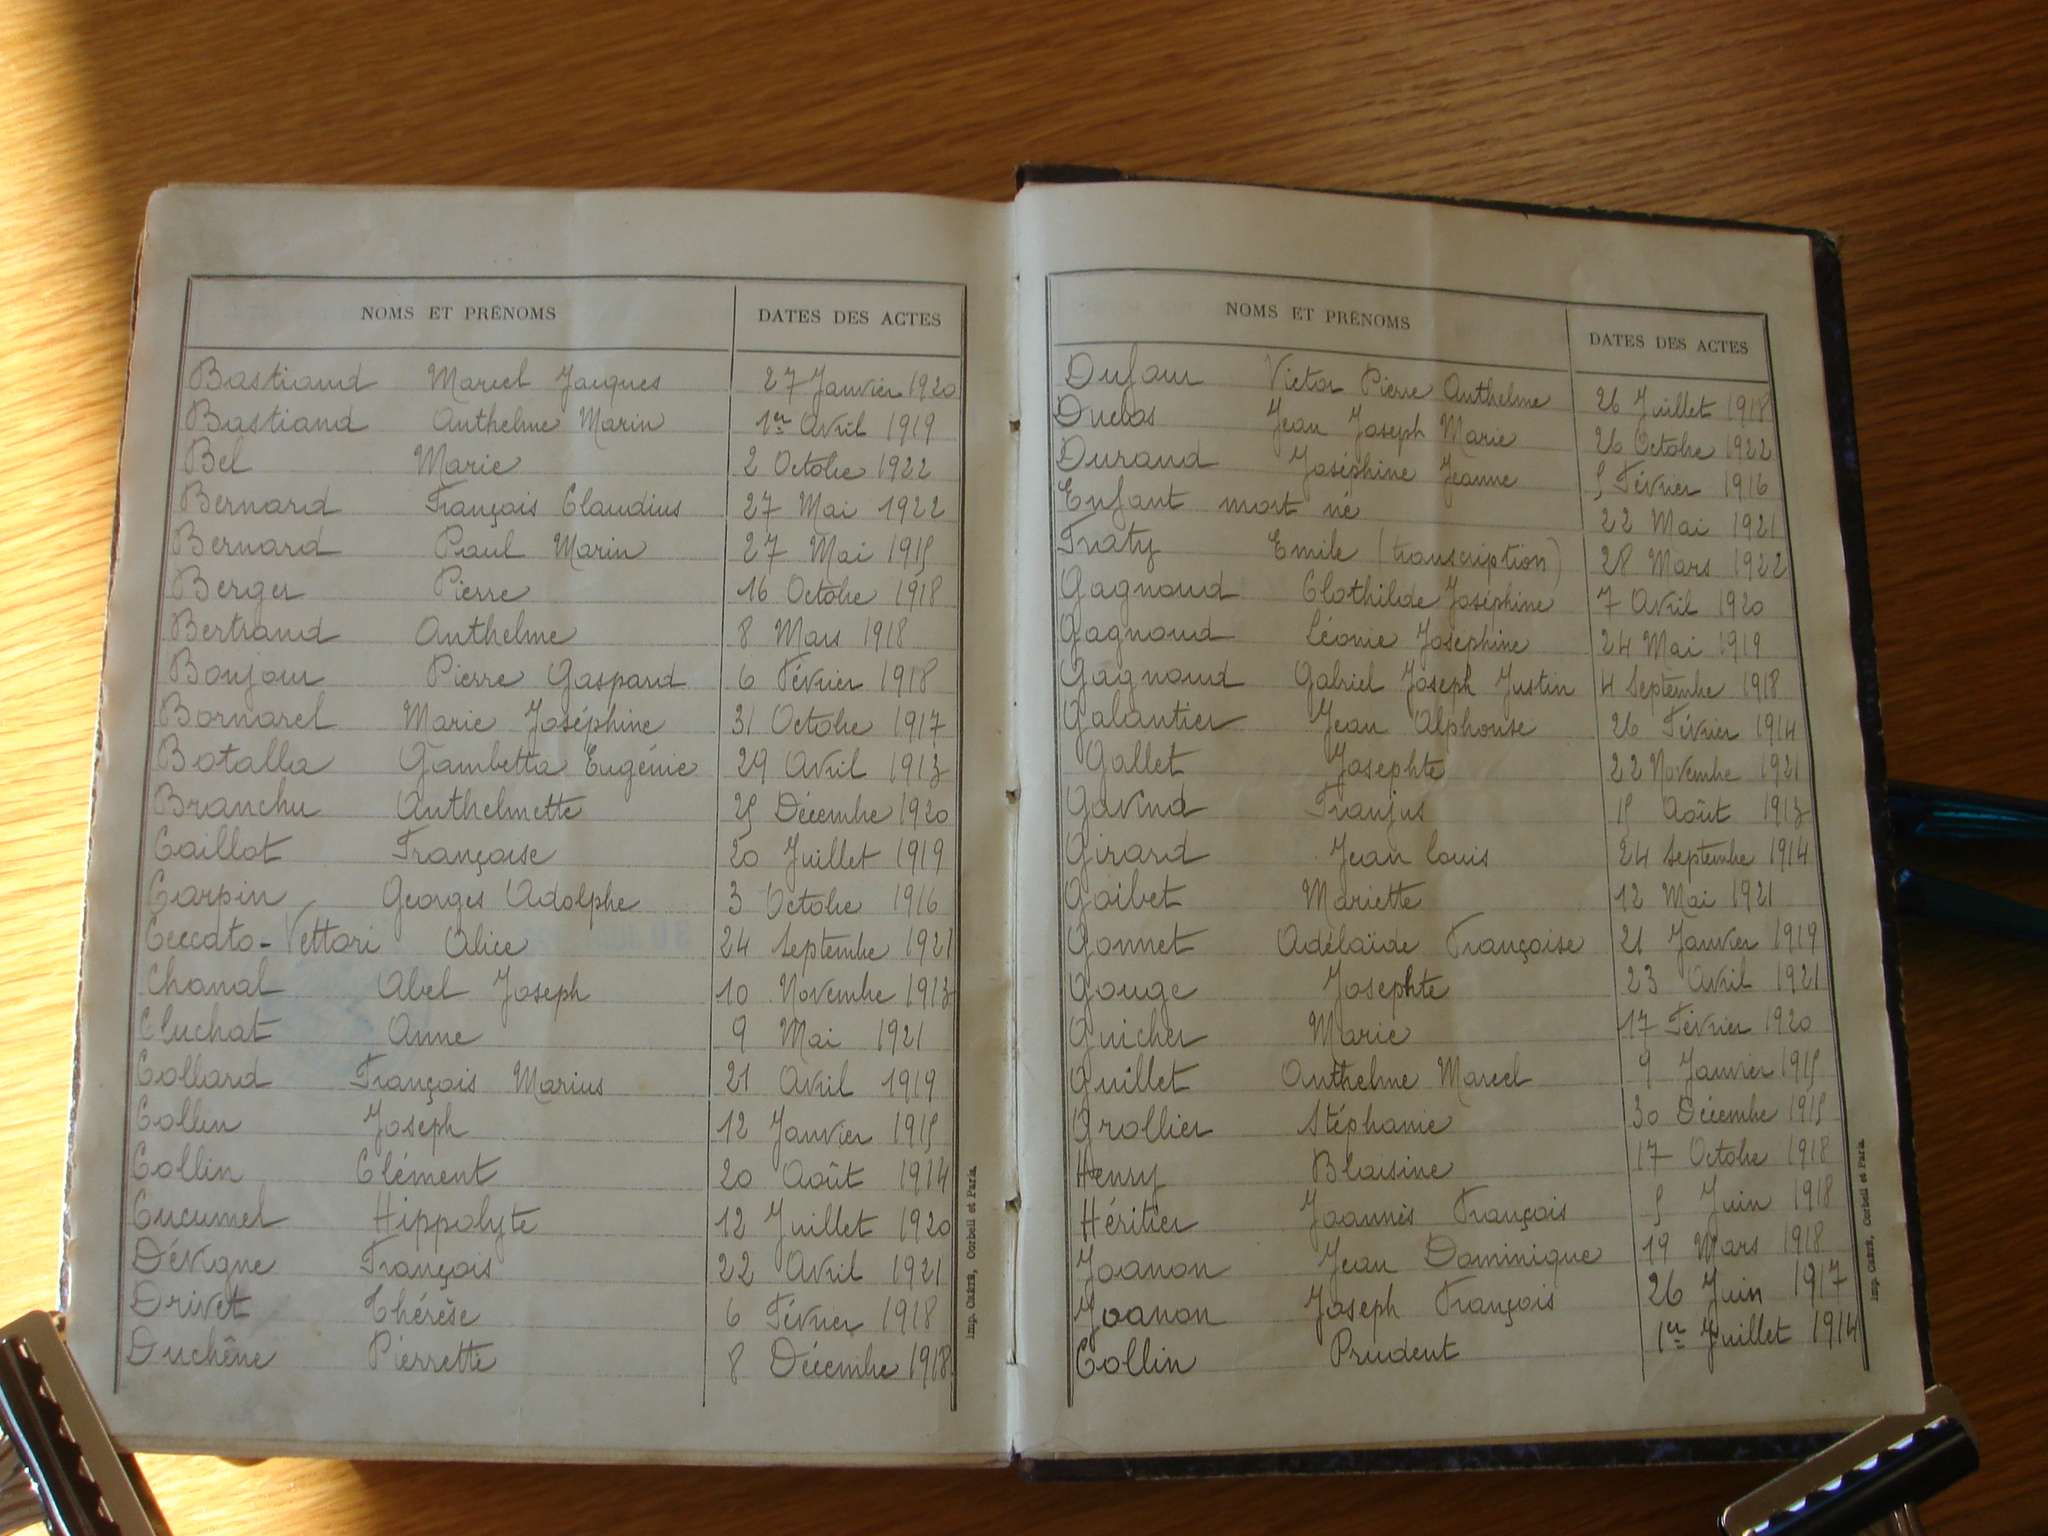 NOMS ET PRÉNOMS DATES DES ACTES
Bastiand Marcel Jacques 27 Janvier 1920
Bastiand Anthelme Marin 1er Avril 1919
Bel Marie 2 Octobre 1922
Bernard François Claudius 27 Mai 1922
Bernard Paul Marin 27 Mai 1915
Berger Pierre 16 Octobre 1918
Bertrand Anthelme 8 Mars 1918
Bonjour Pierre Gaspard 6 Février 1918
Bornarel Marie Joséphine 31 Octobre 1917
Botalla Gambetta Eugénie 29 Avril 1913
Branchu Anthelmette 25 Décembre 1920
Caillot Françoise 20 Juillet 1919
Carpin Georges Adolphe 3 Octobre 1916
Ceccato-Vettori Alice 24 Septembre 1921
Chanal Abel Joseph 10 Novembre 1913
Cluchat Anne 9 Mai 1921
Collard François Marius 21 Avril 1919
Collin Joseph 12 Janvier 1915
Collin Clément 20 Août 1914
Cucumel Hippolyte 12 Juillet 1920
Dévigne François 22 Avril 1921
Drivet Thérèse 6 Février 1918
Duchêne Pierrette 8 Décembre 1918
Imp. CRÉTÉ, Corbeil et Paris.
NOMS ET PRÉNOMS DATES DES ACTES
Dufour Victor Pierre Anthelme 26 Juillet 1918
Duclos Jean Joseph Marie 26 Octobre 1922
Durand Joséphine Jeanne 5 Février 1916
Enfant mort né 22 Mai 1921
Fraty Emile (transcription) 28 Mars 1922
Gagnoud Clothilde Joséphine 7 Avril 1920
Gagnoud Léonie Joséphine 24 Mai 1919
Gagnoud Gabriel Joseph Justin 4 Septembre 1918
Galantier Jean Alphonse 26 Février 1914
Gallet Josephte 22 Novembre 1921
Gavend Franjus 15 Août 1913
Girard Jean Louis 24 Septembre 1914
Goibet Mariette 12 Mai 1921
Gonnet Adélaïde Françoise 21 Janvier 1919
Gouge Josephte 23 Avril 1921
Guicher Marie 17 Février 1920
Guillet Anthelme Marcel 9 Janvier 1915
Grollier Stéphanie 30 Décembre 1915
Henry Blaisine 17 Octobre 1918
Héritier Joannès François 5 Juin 1918
Joanon Jean Dominique 19 Mars 1918
Joanon Joseph François 26 Juin 1917
Collin Prudent 1er Juillet 1914
Imp. CRÉTÉ, Corbeil et Paris.